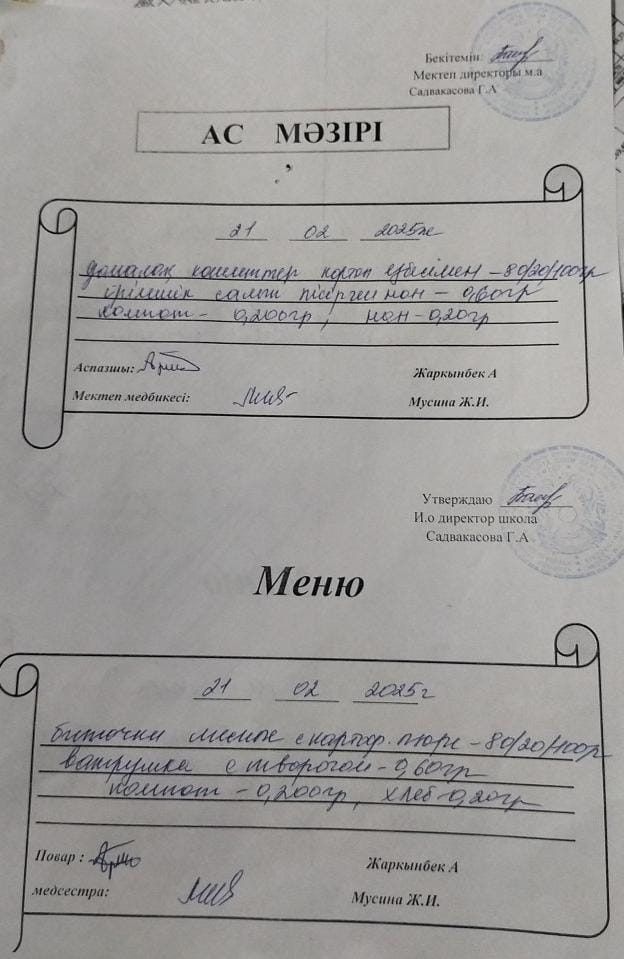 Бекітемін:
Мектеп директоры м.а
Садвакасова Г.А
АС МӘЗІРІ
21 02 2025ж
домалақ котлеттер картоп езбесімен – 80/20/100гр
ірімшік салып пісірген нан – 0,60гр
компот – 0,200гр, нан – 0,20гр
Аспазшы: Жаркынбек А
Мектеп медбикесі: Мусина Ж.И.
Утверждаю
И.о директор школа
Садвакасова Г.А
Меню
21 02 2025г
биточки мясные с картоф. пюре – 80/20/100гр
ватрушка с творогом – 0,60гр
компот – 0,200гр, хлеб-0,20гр
Повар : Жаркынбек А
медсестра: Мусина Ж.И.